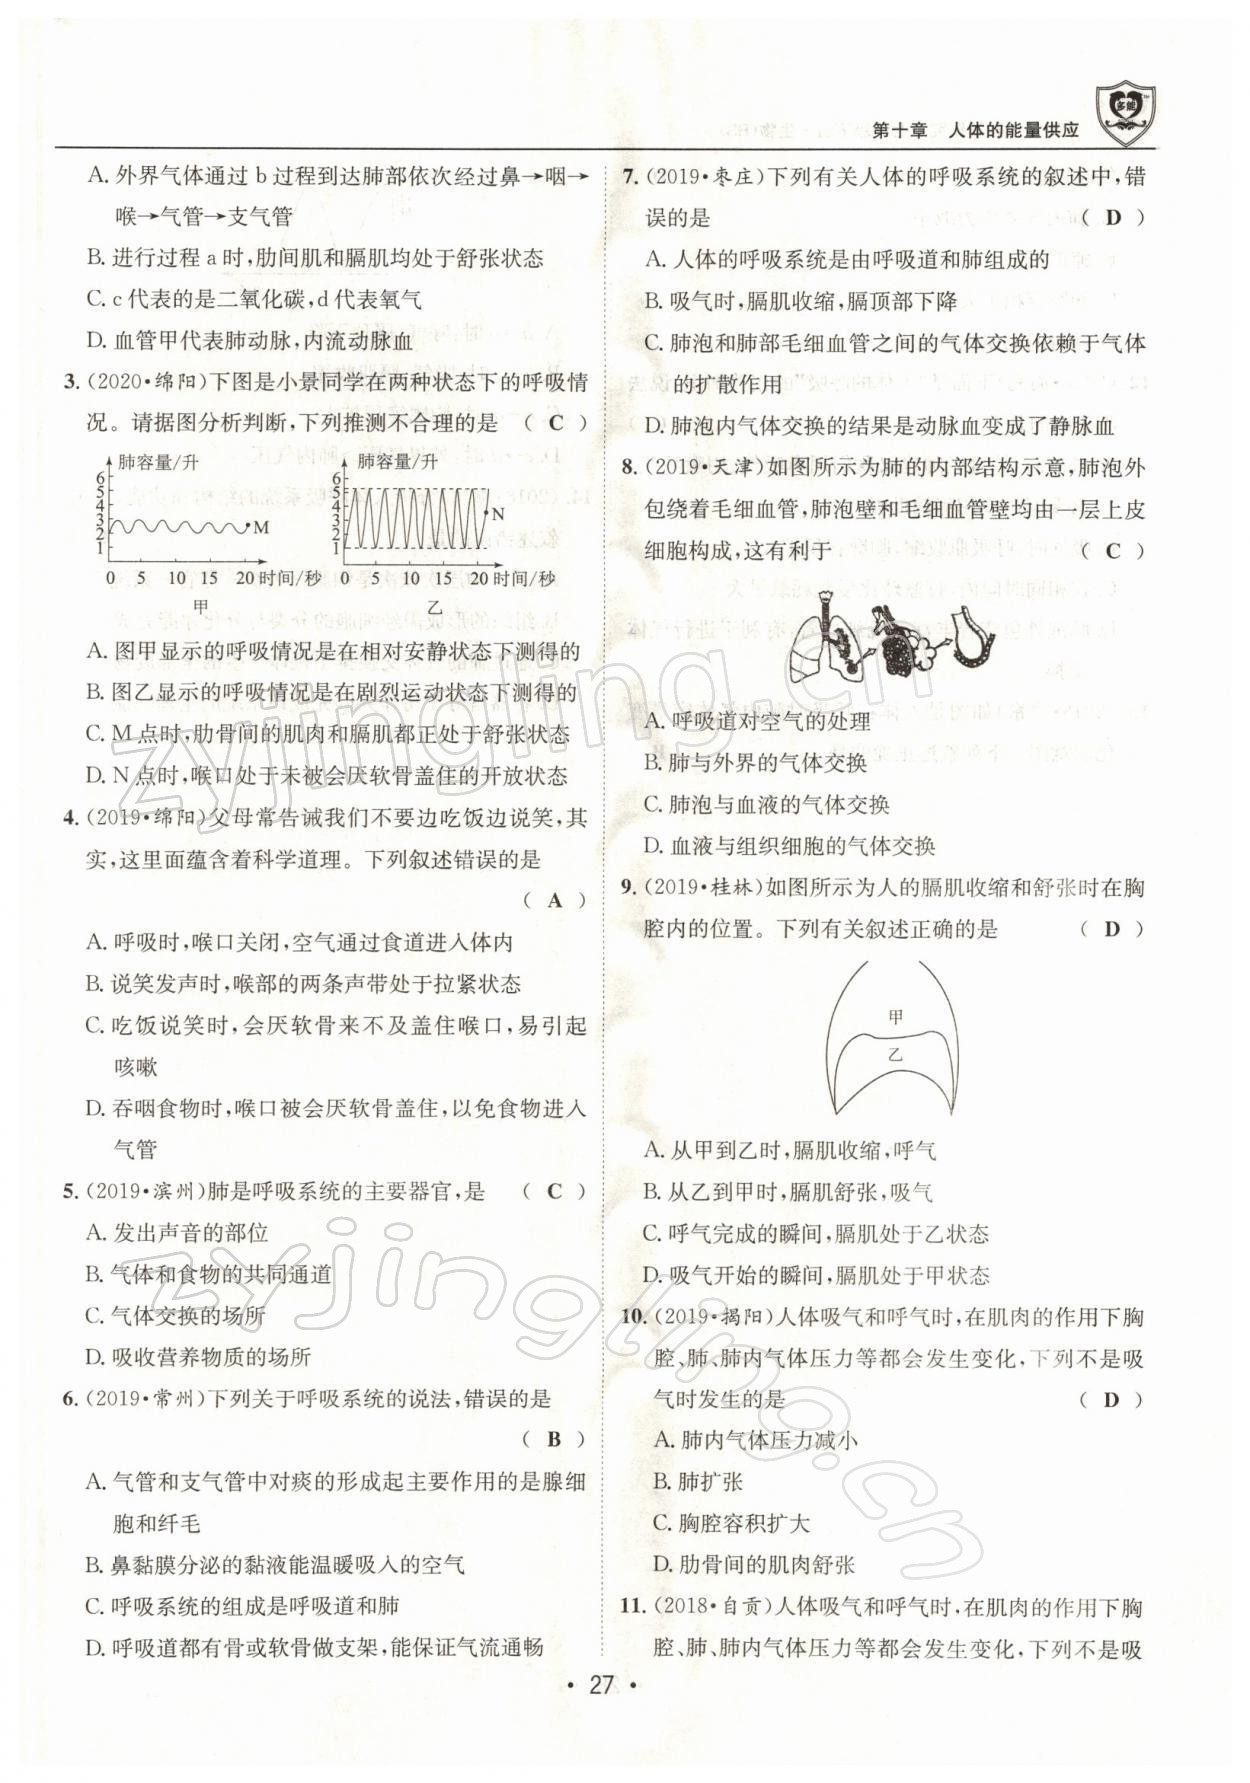 第十章 人体的能量供应
多能
A. 外界气体通过 b 过程到达肺部依次经过鼻→咽→
喉→气管→支气管
B. 进行过程 a 时,肋间肌和膈肌均处于舒张状态
C. c 代表的是二氧化碳,d 代表氧气
D. 血管甲代表肺动脉,内流动脉血
3. (2020·绵阳)下图是小景同学在两种状态下的呼吸情
况。请据图分析判断,下列推测不合理的是 ( C )
肺容量/升
6
5
4
3
2
1
M
0 5 10 15 20 时间/秒
甲
肺容量/升
6
5
4
3
2
1
N
0 5 10 15 20 时间/秒
乙
A. 图甲显示的呼吸情况是在相对安静状态下测得的
B. 图乙显示的呼吸情况是在剧烈运动状态下测得的
C. M 点时,肋骨间的肌肉和膈肌都正处于舒张状态
D. N 点时,喉口处于未被会厌软骨盖住的开放状态
4. (2019·绵阳)父母常告诫我们不要边吃饭边说笑,其
实,这里面蕴含着科学道理。下列叙述错误的是
( A )
A. 呼吸时,喉口关闭,空气通过食道进入体内
B. 说笑发声时,喉部的两条声带处于拉紧状态
C. 吃饭说笑时,会厌软骨来不及盖住喉口,易引起
咳嗽
D. 吞咽食物时,喉口被会厌软骨盖住,以免食物进入
气管
5. (2019·滨州)肺是呼吸系统的主要器官,是 ( C )
A. 发出声音的部位
B. 气体和食物的共同通道
C. 气体交换的场所
D. 吸收营养物质的场所
6. (2019·常州)下列关于呼吸系统的说法,错误的是
( B )
A. 气管和支气管中对痰的形成起主要作用的是腺细
胞和纤毛
B. 鼻黏膜分泌的黏液能温暖吸入的空气
C. 呼吸系统的组成是呼吸道和肺
D. 呼吸道都有骨或软骨做支架,能保证气流通畅
7. (2019·枣庄)下列有关人体的呼吸系统的叙述中,错
误的是 ( D )
A. 人体的呼吸系统是由呼吸道和肺组成的
B. 吸气时,膈肌收缩,膈顶部下降
C. 肺泡和肺部毛细血管之间的气体交换依赖于气体
的扩散作用
D. 肺泡内气体交换的结果是动脉血变成了静脉血
8. (2019·天津)如图所示为肺的内部结构示意,肺泡外
包绕着毛细血管,肺泡壁和毛细血管壁均由一层上皮
细胞构成,这有利于 ( C )
A. 呼吸道对空气的处理
B. 肺与外界的气体交换
C. 肺泡与血液的气体交换
D. 血液与组织细胞的气体交换
9. (2019·桂林)如图所示为人的膈肌收缩和舒张时在胸
腔内的位置。下列有关叙述正确的是 ( D )
甲
乙
A. 从甲到乙时,膈肌收缩,呼气
B. 从乙到甲时,膈肌舒张,吸气
C. 呼气完成的瞬间,膈肌处于乙状态
D. 吸气开始的瞬间,膈肌处于甲状态
10. (2019·揭阳)人体吸气和呼气时,在肌肉的作用下胸
腔、肺、肺内气体压力等都会发生变化,下列不是吸
气时发生的是 ( D )
A. 肺内气体压力减小
B. 肺扩张
C. 胸腔容积扩大
D. 肋骨间的肌肉舒张
11. (2018·自贡)人体吸气和呼气时,在肌肉的作用下胸
腔、肺、肺内气体压力等都会发生变化,下列不是吸
· 27 ·
zyjingling.cn
zyjingling.cn